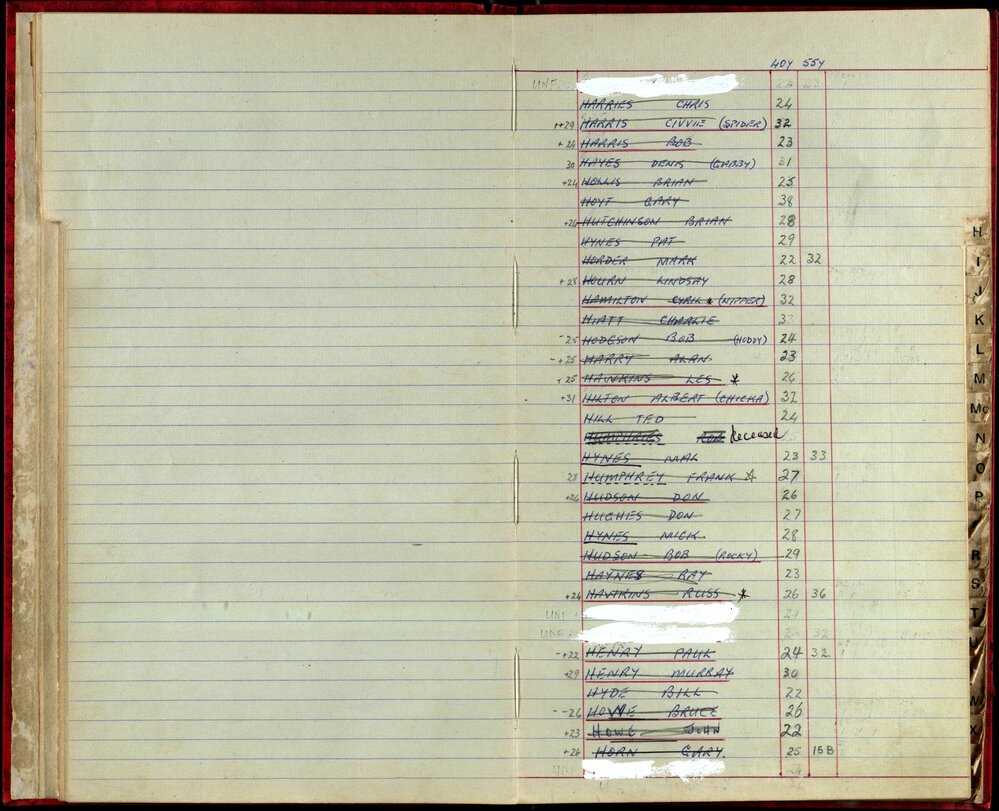 40Y 55Y
UNF 24 23
HARRIES CHRIS 24
++29 HARRIS CIVVIE (SPIDER) 32
+24 HARRIS BOB 23
30 HAYES DENIS (GABBY) 31
+24 HOLLIS BRIAN 25
HOYT GARY 38
+26 HUTCHINSON BRIAN 28
HYNES PAT 29
HORDER MARK 22 32
+28 HOURN LINDSAY 28
HAMILTON CYRIL * (NIPPER) 32
HIATT CHARLIE 33
-25 HODGSON BOB (HODDY) 24
-+25 HARRY ALAN 23
+25 HAWKINS LES * 26
+31 HILTON ALBERT (CHICKA) 32
HILL TED 24
BOB deceased
HYNES MAL 23 33
28 HUMPHREY FRANK ☆ 27
+26 HUDSON DON 26
HUGHES DON 27
HYNES MICK 28
HUDSON BOB (ROCKY) 29
HAYNES RAY 23
+24 HAWKINS RUSS * 26 36
UNF 27
UNF 32
-+22 HENRY PAUL 24 32
+29 HENRY MURRAY 30
HYDE BILL 22
--26 HOWE BRUCE 26
+23 HOWE JOHN 22
+24 HORN GARY. 25 15B
H
I
J
K
L
M
Mc
N
O
P
R
S
T
W
X